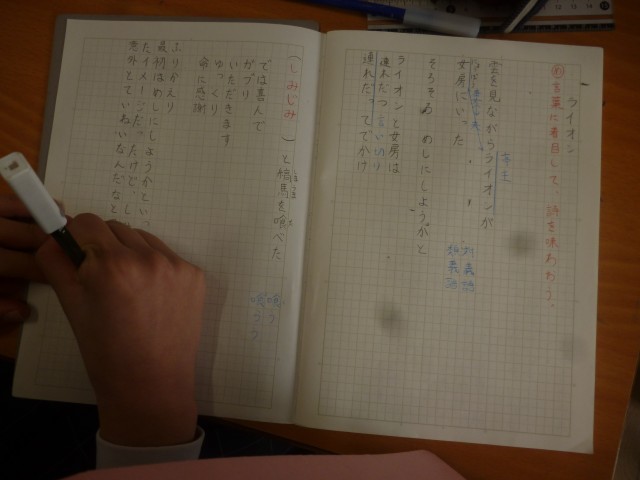 ライオン
め 言葉に着目して、詩を味わおう。
雲を見ながらライオンが
帝王
女房にいった
対義語
類義語
そろそろ めしにしようかと
ライオンと女房は
連れだつ 言い切り
連れだってでかけ
(しみじみ )と縞馬を喰べた
しま
喰う
喰らう
では喜んで
ガブリ
いただきます
ゆっくり
命に感謝
ふりかえり
最初はめしにしようかという
たイメージだったけど、し
意外とていねいなんだなと